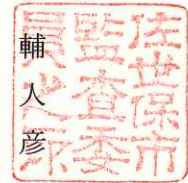 佐世保市
監査委
員之印
輔
人
彦